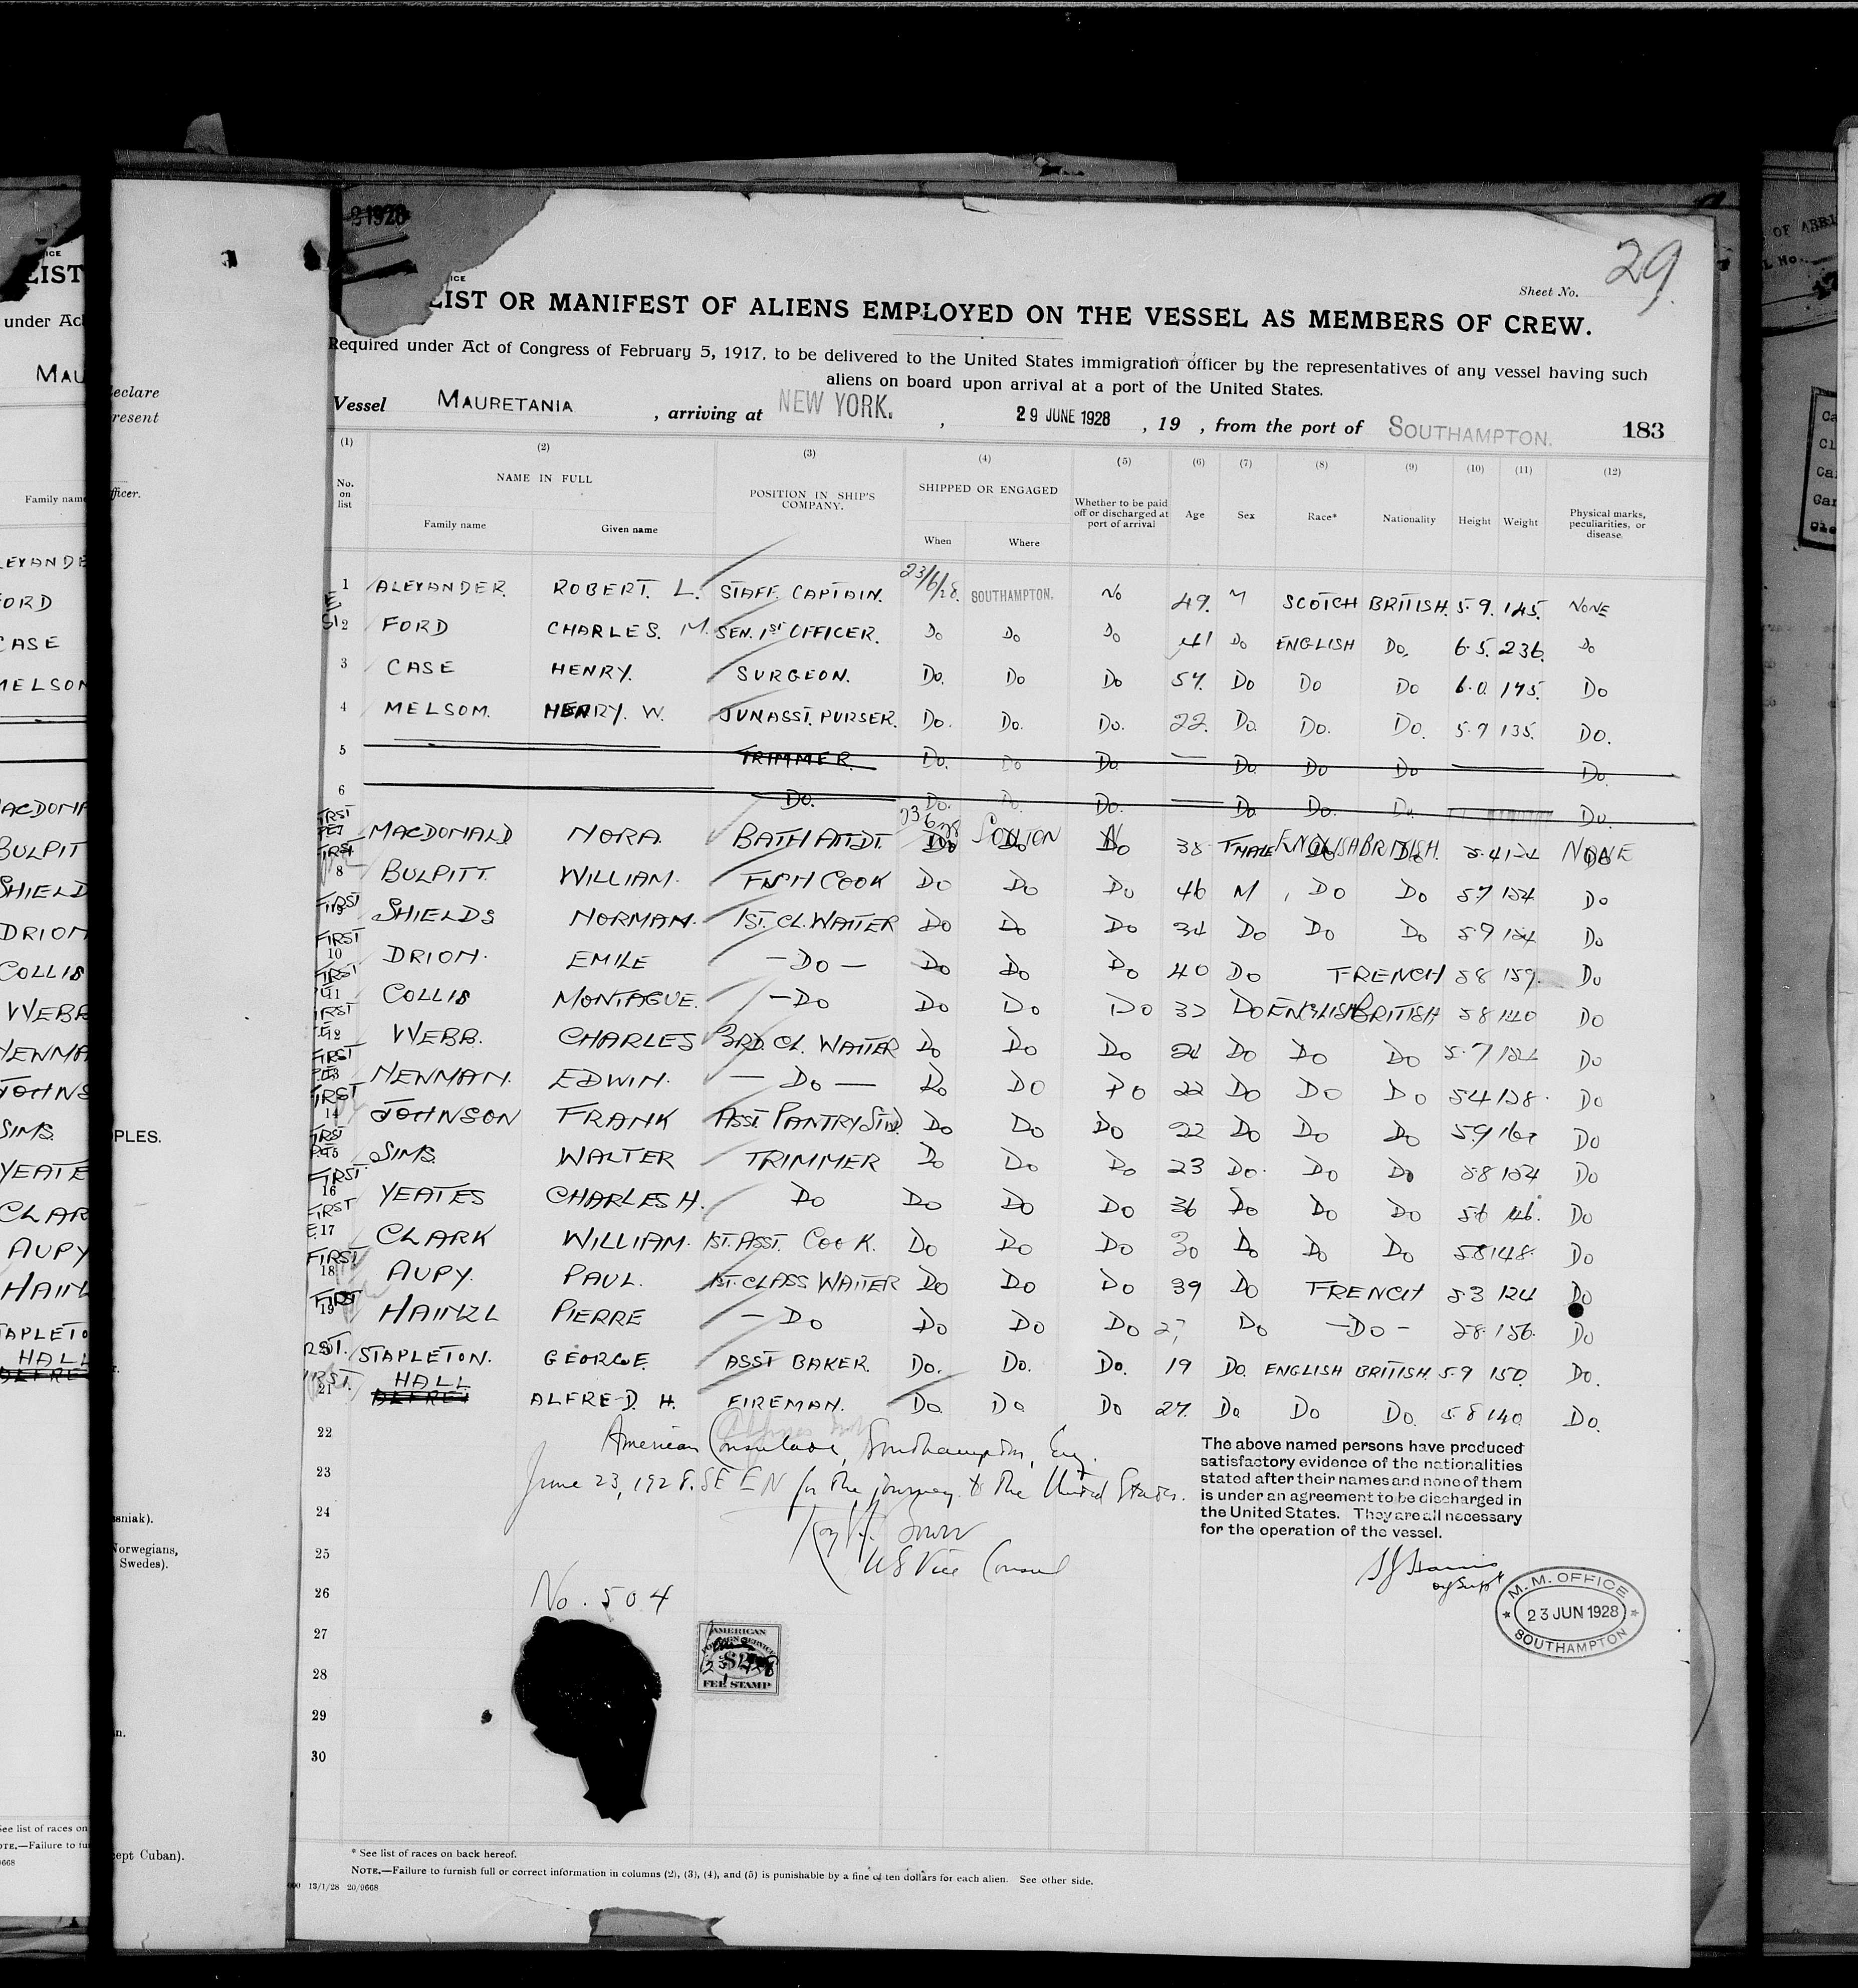 29
Sheet No.
LIST OR MANIFEST OF ALIENS EMPLOYED ON THE VESSEL AS MEMBERS OF CREW.
Required under Act of Congress of February 5, 1917, to be delivered to the United States immigration officer by the representatives of any vessel having such
aliens on board upon arrival at a port of the United States.
Vessel MAURETANIA , arriving at NEW YORK. , 29 JUNE 1928 , 19 , from the port of SOUTHAMPTON. 183
(1) (2) (3) (4) (5) (6) (7) (8) (9) (10) (11) (12)
No. on list NAME IN FULL POSITION IN SHIP'S COMPANY. SHIPPED OR ENGAGED Whether to be paid off or discharged at port of arrival Age Sex Race* Nationality Height Weight Physical marks, peculiarities, or disease.
Family name Given name When Where
1 ALEXANDER. ROBERT. L. STAFF. CAPTAIN. 23/6/28. SOUTHAMPTON. No 49. M SCOTCH BRITISH. 5.9. 145. NONE
2 FORD CHARLES. M. SEN. 1ST OFFICER. Do Do Do 41 Do ENGLISH Do. 6.5. 236. Do
3 CASE HENRY. SURGEON. Do. Do Do 54. Do Do Do 6.0. 175. Do
4 MELSOM. HENRY. W. JUN ASST. PURSER. Do. Do. Do. 22. Do. Do. Do. 5.9 135. DO.
5 TRIMMER. Do. Do Do Do Do Do Do
6 Do. Do. Do. Do. Do. Do. Do. Do.
7 MACDONALD NORA. BATH ATTDT. 23 6 28 SOUTON No 38 F'MALE ENGLISH BRITISH. 5.4 NONE
FIRST 8 BULPITT. WILLIAM. FISH COOK Do Do Do 46 M Do Do 57 154 Do
FIRST SHIELDS NORMAN. 1ST. CL. WAITER Do Do Do 34 Do Do Do 59 Do
FIRST 10 DRION. EMILE — Do — Do Do Do 40 Do FRENCH 58 159. Do
FIRST 11 COLLIS MONTAGUE. — Do Do Do Do Do ENGLISH BRITISH 58 140 Do
12 WEBB. CHARLES 3RD. CL. WAITER Do Do Do Do Do Do 5.7 Do
FIRST 13 NEWMAN. EDWIN. — Do — Do Do Do 22 Do Do Do 54 128. Do
FIRST 14 JOHNSON FRANK ASST PANTRY STWD. Do Do Do 22 Do Do Do 59 Do
SIMS. WALTER TRIMMER Do Do Do 23 Do. Do Do 58 154 Do
FIRST 16 YEATES CHARLES H. Do Do Do Do 36 Do Do Do 56 146. Do
FIRST 17 CLARK WILLIAM. 1ST. ASST. COOK. Do Do Do 30 Do Do Do 58 148. Do
FIRST 18 AUPY. PAUL. 1ST. CLASS WAITER Do Do Do 39 Do FRENCH 53 124 Do
FIRST 19 HAINZL PIERRE — Do Do Do Do Do — Do — 58. 156. Do
STAPLETON. GEORGE. ASST BAKER. Do. Do. Do. 19 Do. ENGLISH BRITISH. 5.9 150. Do.
21 HALL ALFRED ALFRED. H. FIREMAN. Do. Do Do 27. Do Do Do. 5.8 140. Do.
22 American Consulate, Southampton, Eng.
23 June 23, 1928. SEEN for the journey to the United States.
24
25 US Vice Consul
The above named persons have produced
satisfactory evidence of the nationalities
stated after their names and none of them
is under an agreement to be discharged in
the United States. They are all necessary
for the operation of the vessel.
M.M. OFFICE
23 JUN 1928
SOUTHAMPTON
26 No. 504
27
28
29
30
AMERICAN
FOREIGN SERVICE
FEE STAMP
* See list of races on back hereof.
NOTE.—Failure to furnish full or correct information in columns (2), (3), (4), and (5) is punishable by a fine of ten dollars for each alien. See other side.
13/1/28 20/9668